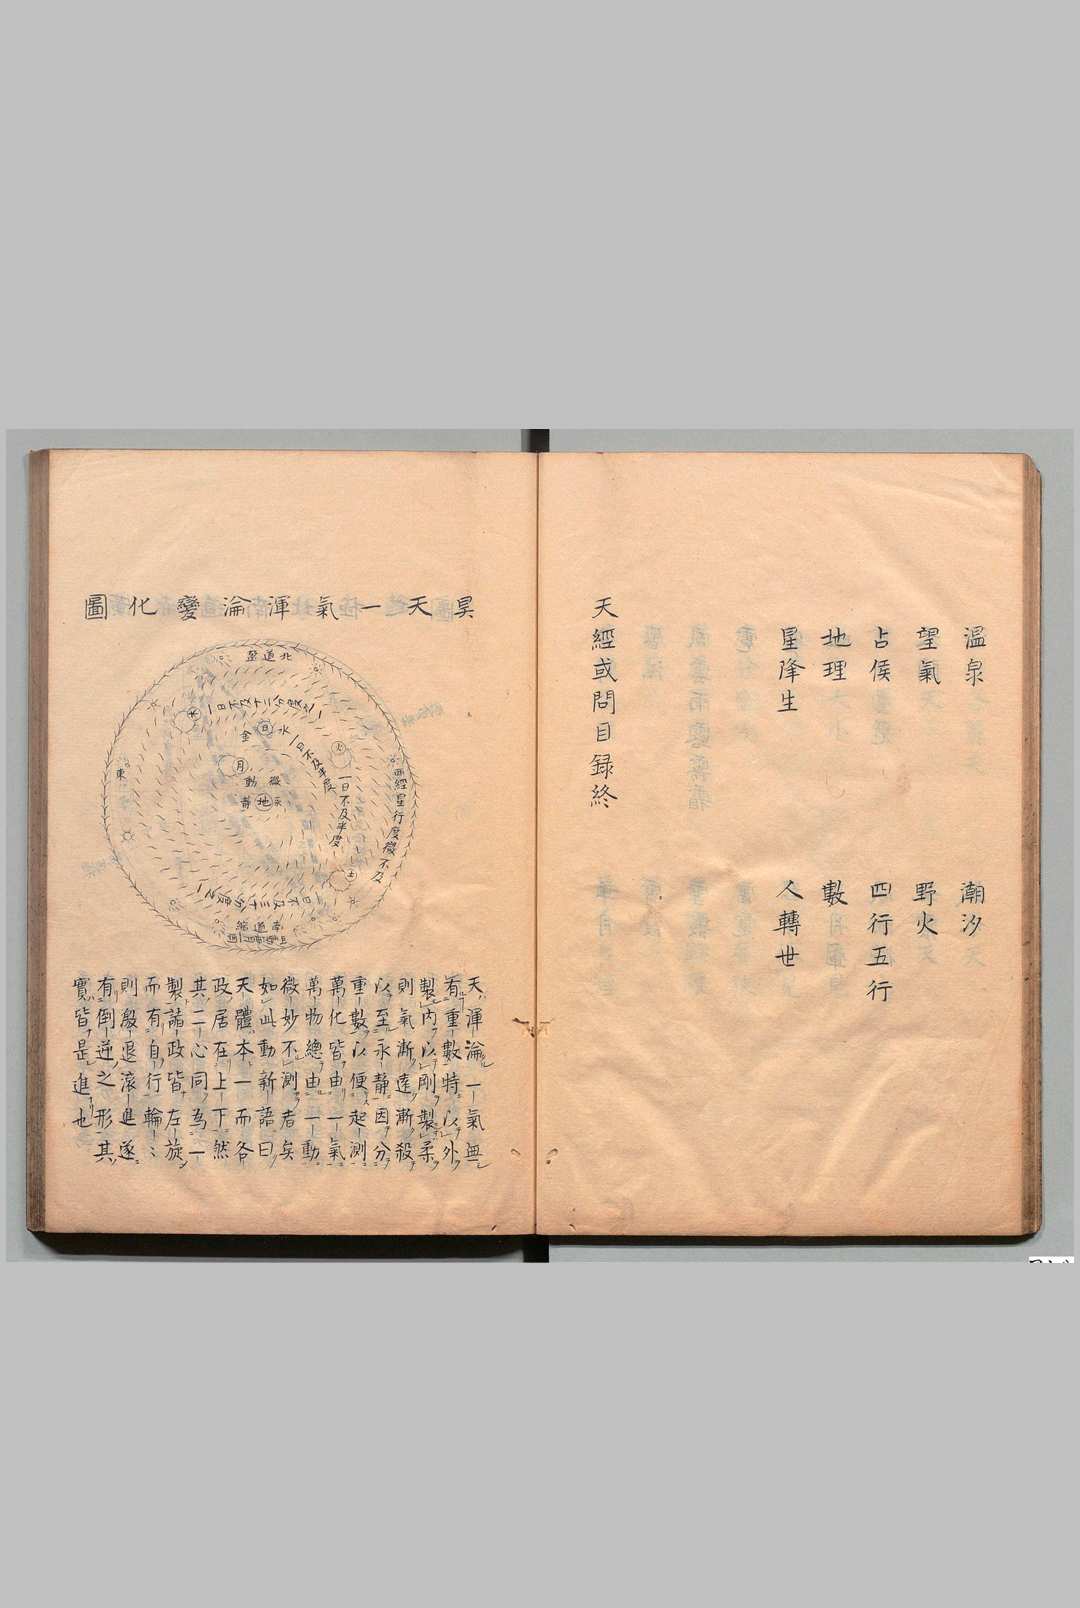 温泉
潮汐
望氣
野火
占侯
四行五行
地理
數
星降生
人轉世
天經或問目録終
昊天一氣渾淪變化圖
北道至
一日不及十二分度之一
木
日
水
金
火
一日不及半度
一日不及半度
月
動
微
地
東
西經星行度微不及
土
南道
天渾淪一氣無
有重數特以外
製內以剛製柔
則氣漸遠漸殺
以至永靜因分
重數以便起測
萬化皆由一氣
萬物總由一動
微妙不測者矣
如此動新語曰
天體本一而各
政居在上下然
其二心同為一
製諸政皆左旋
而有自行輪〻
則殷退滚進遂
有倒逆之形其
實皆是進也